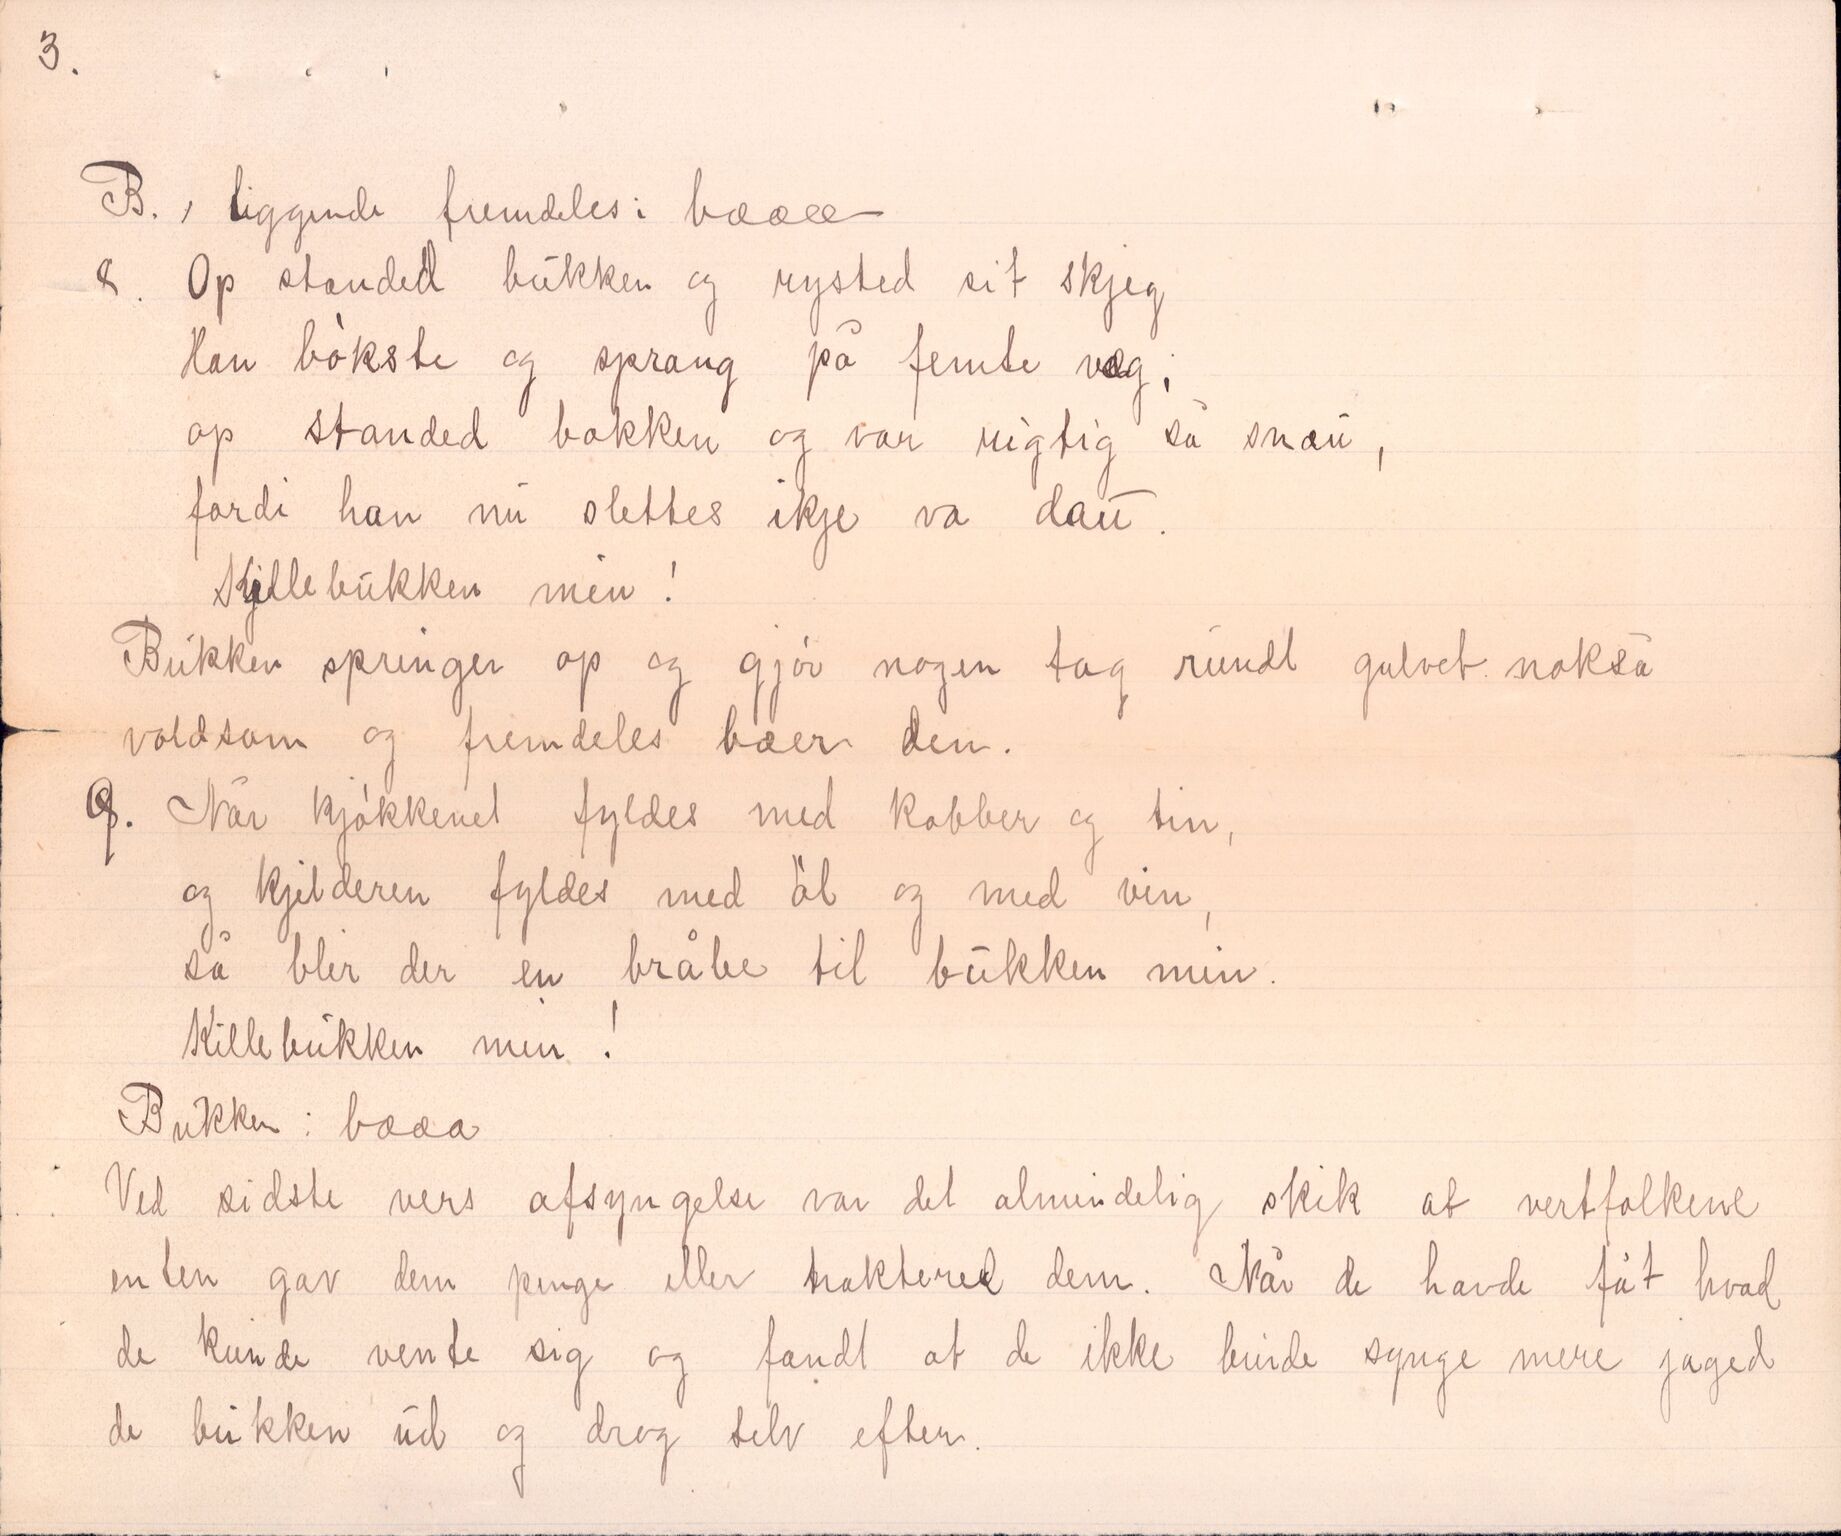 3.
B., liggende fremdeles: bææe
8. Op standed bukken og rysted sit skjeg
Han bòkste og sprang på femte væg;
op standed bokken og var rigtig så snau,
fordi han nu slettes ikje va dau.
Kjillebukken min!
Bukken springer op og gjór nogen tag rundt gulvet nokså
voldsom og fremdeles bæer den.
9. Når kjókkenet fyldes med kobber og tin,
og kjelderen fyldes med öl og med vin,
så blir der en bråte til bukken min.
Killebukken min!
Bukken: bææa
Ved sidste vers afsyngelse var det almindelig skik at vertfolkene
enten gav dem penge eller traktered dem. Når de havde fåt hvad
de kunde vente sig og fandt at de ikke burde synge mere jaged
de bukken ud og drog selv efter.